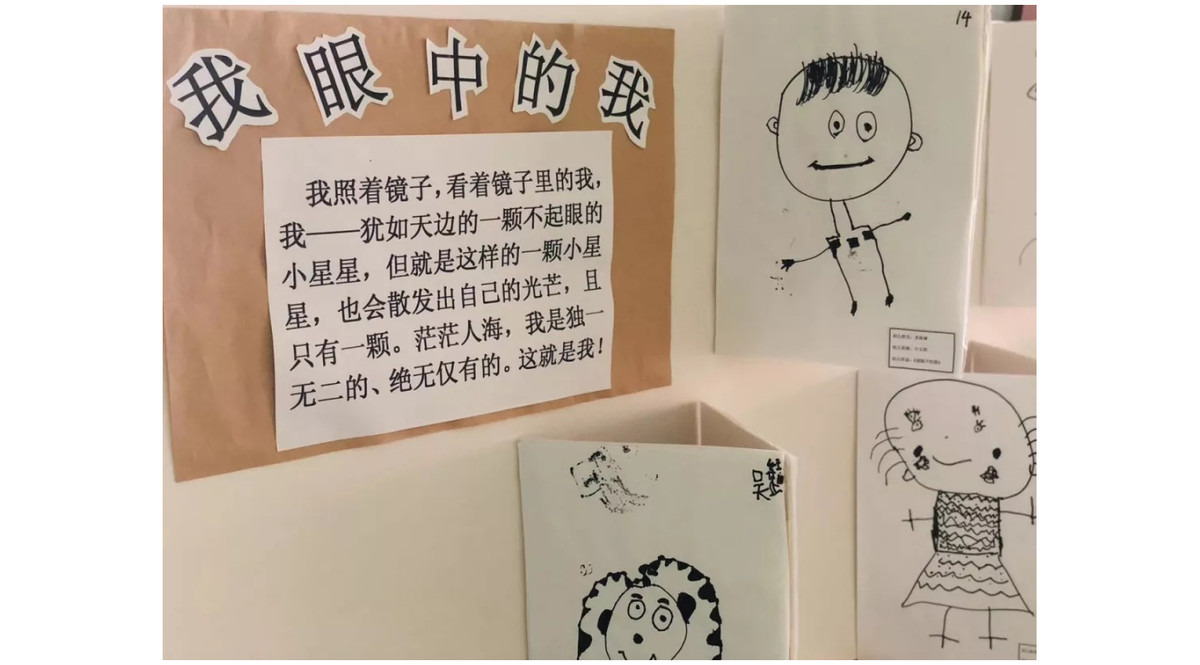 我眼中的我
我照着镜子，看着镜子里的我，
我——犹如天边的一颗不起眼的
小星星，但就是这样的一颗小星
星，也会散发出自己的光芒，且
只有一颗。茫茫人海，我是独一
无二的、绝无仅有的。这就是我！
14